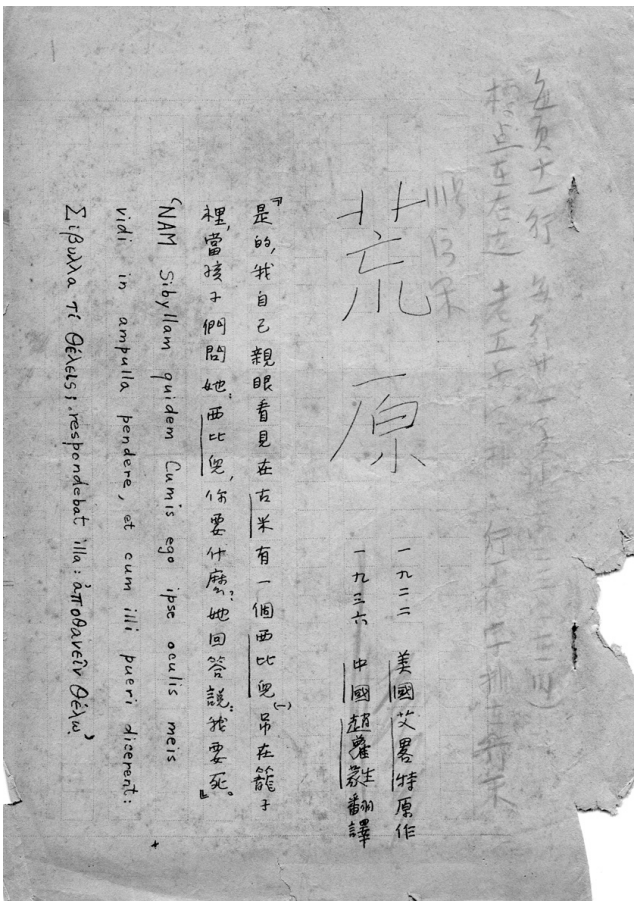 每頁十一行
標点在右边
荒原
一九二二　美國艾畧特原作
一九三六　中國趙蘿蕤翻譯
『是的,我自己親眼看見在古米有一個西比兒(一)吊在籠子
裡,當孩子們問她:西比兒,你要什麽?她回答說:我要死。』
“NAM Sibyllam quidem Cumis ego ipse oculis meis
vidi in ampulla pendere, et cum illi pueri dicerent:
Σίβυλλα τί θέλεις; respondebat illa: ἀποθανεῖν θέλω.”